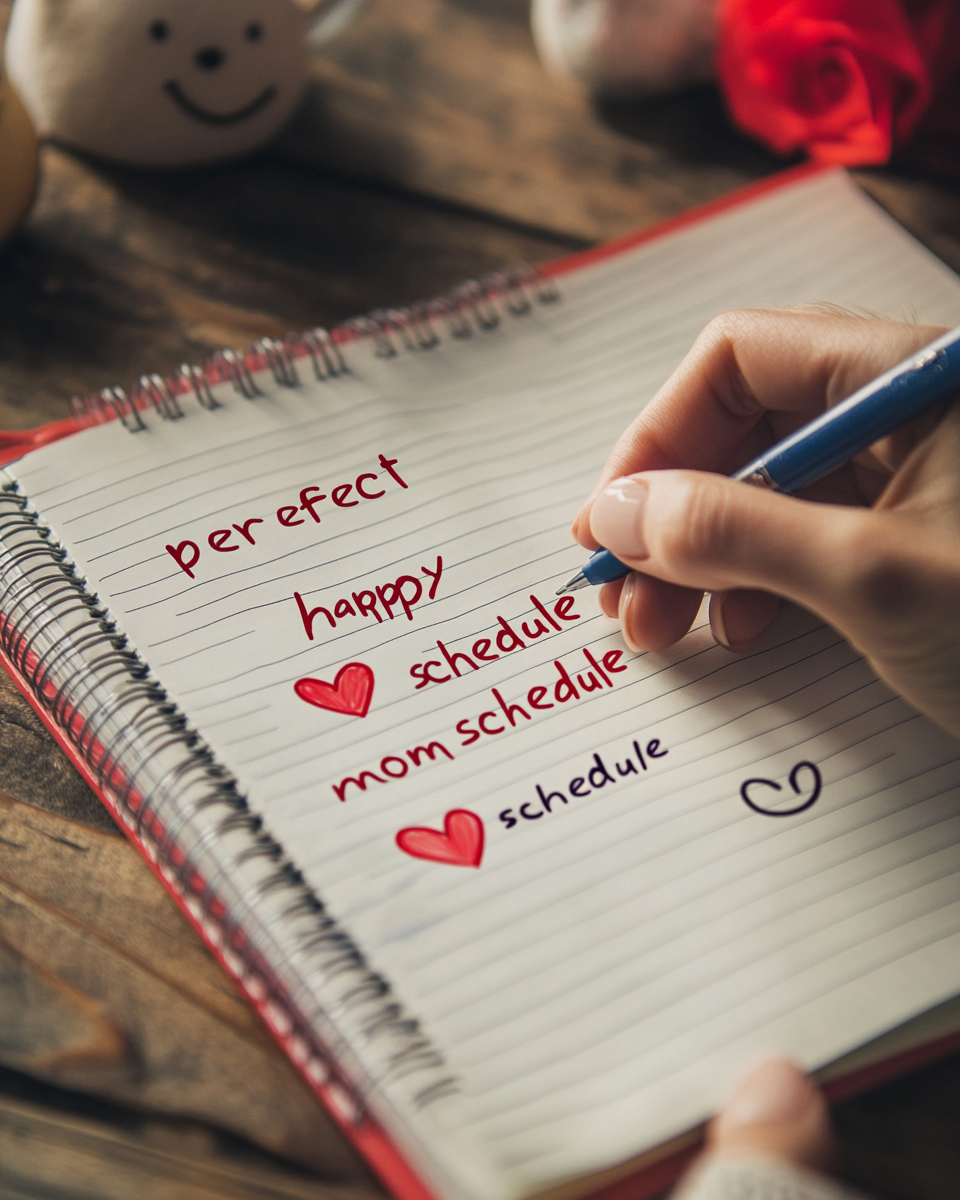 perefect
happy
schedule
mom schedule
schedule